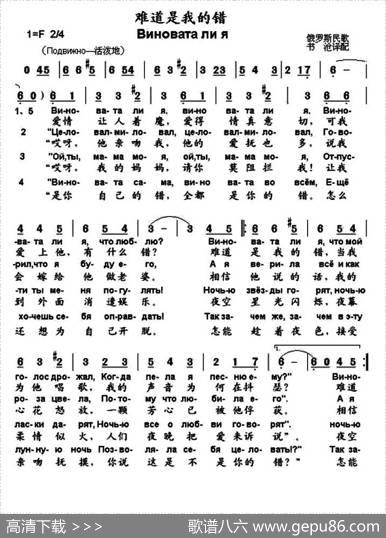 难道是我的错
Виновата ли я
1=F 2/4
俄罗斯民歌
书沧译配
(Подвижно—活泼地)
0 45 6 6 5 4 6 5 4 6 3 #2 3 23 5 4 3 2 17 6 –
6 3 2 1 6 6 6 6 6 3 #2 3 2 3 6 6
1. 5 Ви-но- ва-та ли я, ви-но- ва-та ли я, Ви-но-
爱情 让人着魔, 爱得 情真意切, 可我
2 "Це-ло- вал-ми-ло- вал, це-ло- вал-ми-ло- вал, Го-во-
"哎呀, 他亲吻我, 他的 爱抚也多, 说我
3 "Ой,ты, ма-ма мо-я, ой,ты, ма-ма мо-я, От-пус-
"哎呀, 我的妈妈, 请你 莫阻拦我! 让我
4 "Ви-но- ва-та са-ма, ви-но- ва-та во всём, Е-щё
"是你 自己的错, 全都 是你的错。 怎么
-ва-та ли я, что люб- лю? Ви-но- ва-та ли я, что мой
爱上他, 有什么错? 难道 是我的错, 当我
-рил,что я бу-ду е- го, А я ве-ри-ла всё и как
会嫁给他做老婆。 相信 他说的话, 我的
-ти ты ме-ня по-гу- лять! Ночью звёз-ды го- рят, ночь-ю
到外面消遣娱乐。 夜空 星光闪烁, 夜幕
хо-чешь се-бя оп-рав- дать! Так за- чем же, за- чем в э-ту
还想为自己开脱。 怎能 趁着夜色, 接受
го-лос дро-жал, Ког-да пе-ла я пес-ню е- му?" Ви-но-
为他唱歌, 我的 声音为何在抖瑟? 难道
ро-за цве-ла, По-то- му что лю-би-ла е- го". А я
心花怒放, 一颗 芳心已被他俘获。 相信
лас-ки да- рят, Ночь-ю все о люб-ви го-во- рят", ночь-ю
柔情似火, 人们 夜晚把爱来诉说"。 夜空
лун-ну-ю ночь Поз-во- ля-ла се-бя це-ло- вать?" Так за-
亲吻抚摸, 你说 这是不是你的错?" 怎能
高清下载 >>>
歌谱八六 www.gepu86.com